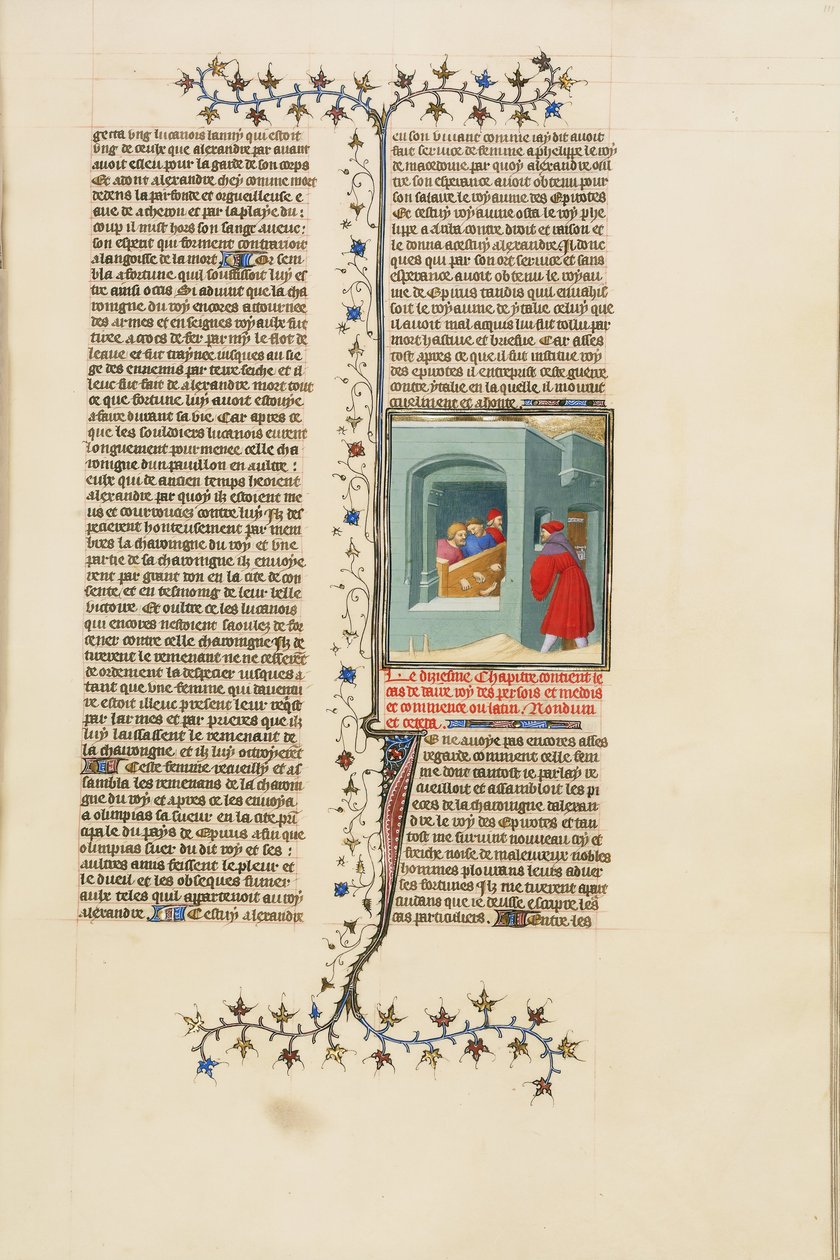 gecta ung lucanois banny qui estoit
ung de ceulx que alexandre par avant
avoit esleu pour la garde de son corps
Et adont alexandre chey comme mort
dedens la parfonde et orgueilleuse e
aue de acheron et par la playe du :
coup il mist hors son sang avecq:
son esperit qui forment contrarioit
a langoisse de la mort Or sem
bla a fortune quil souffisoit luy es
tre ainsi occis Si advint que la cha
roingne du roy encores attournee
des armes et enseignes royaulx fut
tiree a crocs de fer par my le flot de
leaue et fut traynee jusques au sie
ge des ennemis par terre seiche et il
lec fut fait de alexandre mort tout
ce que fortune luy avoit espoyre
a faire durant sa vie Car apres ce
que les souldoiers lucanois eurent
longuement pourmenee celle cha
roingne dun pavillon en aultre :
ceulx qui de ancien temps heoient
alexandre par quoy ilz estoient me
us et courroucez contre luy Ilz des
pecierent honteusement par mem
bres la charoingne du roy et une
partie de sa charoingne ilz envoye
rent par grant don en la cite de con
sente et en tesmoing de leur belle
victoire Et oultre ce les lucanois
qui encores nestoient saoulez de for
cener contre celle charoingne Ilz de
tirerent le remenant ne ne cesserent
de ordement la despecier jusques a
tant que une femme qui daventu
re estoit illec present leur requist
par larmes et par prieres que ilz
luy laissassent le remenant de
la charoingne et ilz luy octroyerent
Ceste femme recueilly et as
sambla les remenans de la charoin
gne du roy et apres ce les envoya
a olimpias sa sueur en la cite prin
cipale du pays de Epirus afin que
olimpias suer du dit roy et ses :
aultres amis feissent le pleur et
le dueil et les obseques funer
aulx telles quil appartenoit au roy
alexandre Cestuy alexandre
en son vivant comme jay dit avoit
fait service de femme a phelippe le roy
de macedoine par quoy alexandre oul
tre son esperance avoit obtenu pour
son salaire le royaume des Epirotes
Et cestuy royaume osta le roy phe
lippe a Arita contre droit et raison et
le donna a cestuy alexandre Il donc
ques qui par son ort service et sans
esperance avoit obtenu le royau
me de Epirus tandis quil envahis
soit le royaume de ytalie celuy que
il avoit mal acquis lui fut tollu par
mort hastive et briefve Car asses
tost apres ce que il fut institue roy
des epirotes il entreprist ceste guerre
contre ytalie en laquelle il mourut
cruelment et a honte.
Le diziesme Chapitre contient le
cas de daire roy des persois et medois
et commence ou latin. Nondum
et cetera.
E ne avoye pas encores asses
regarde comment celle fem
me dont tantost je parlay re
cueilloit et assambloit les pi
eces de la charoingne dalexan
dre le roy des Epirotes et tan
tost me survint nouveau cry et
freiche noise de maleureux nobles
hommes plourans leurs adver
ses fortunes Ilz me tirerent a part
cuidans que je deusse escripre les
cas particuliers. Entre les